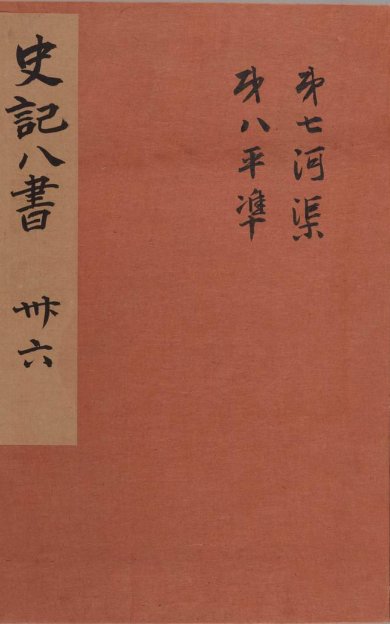 史記八書 卅六
第七河渠
第八平準